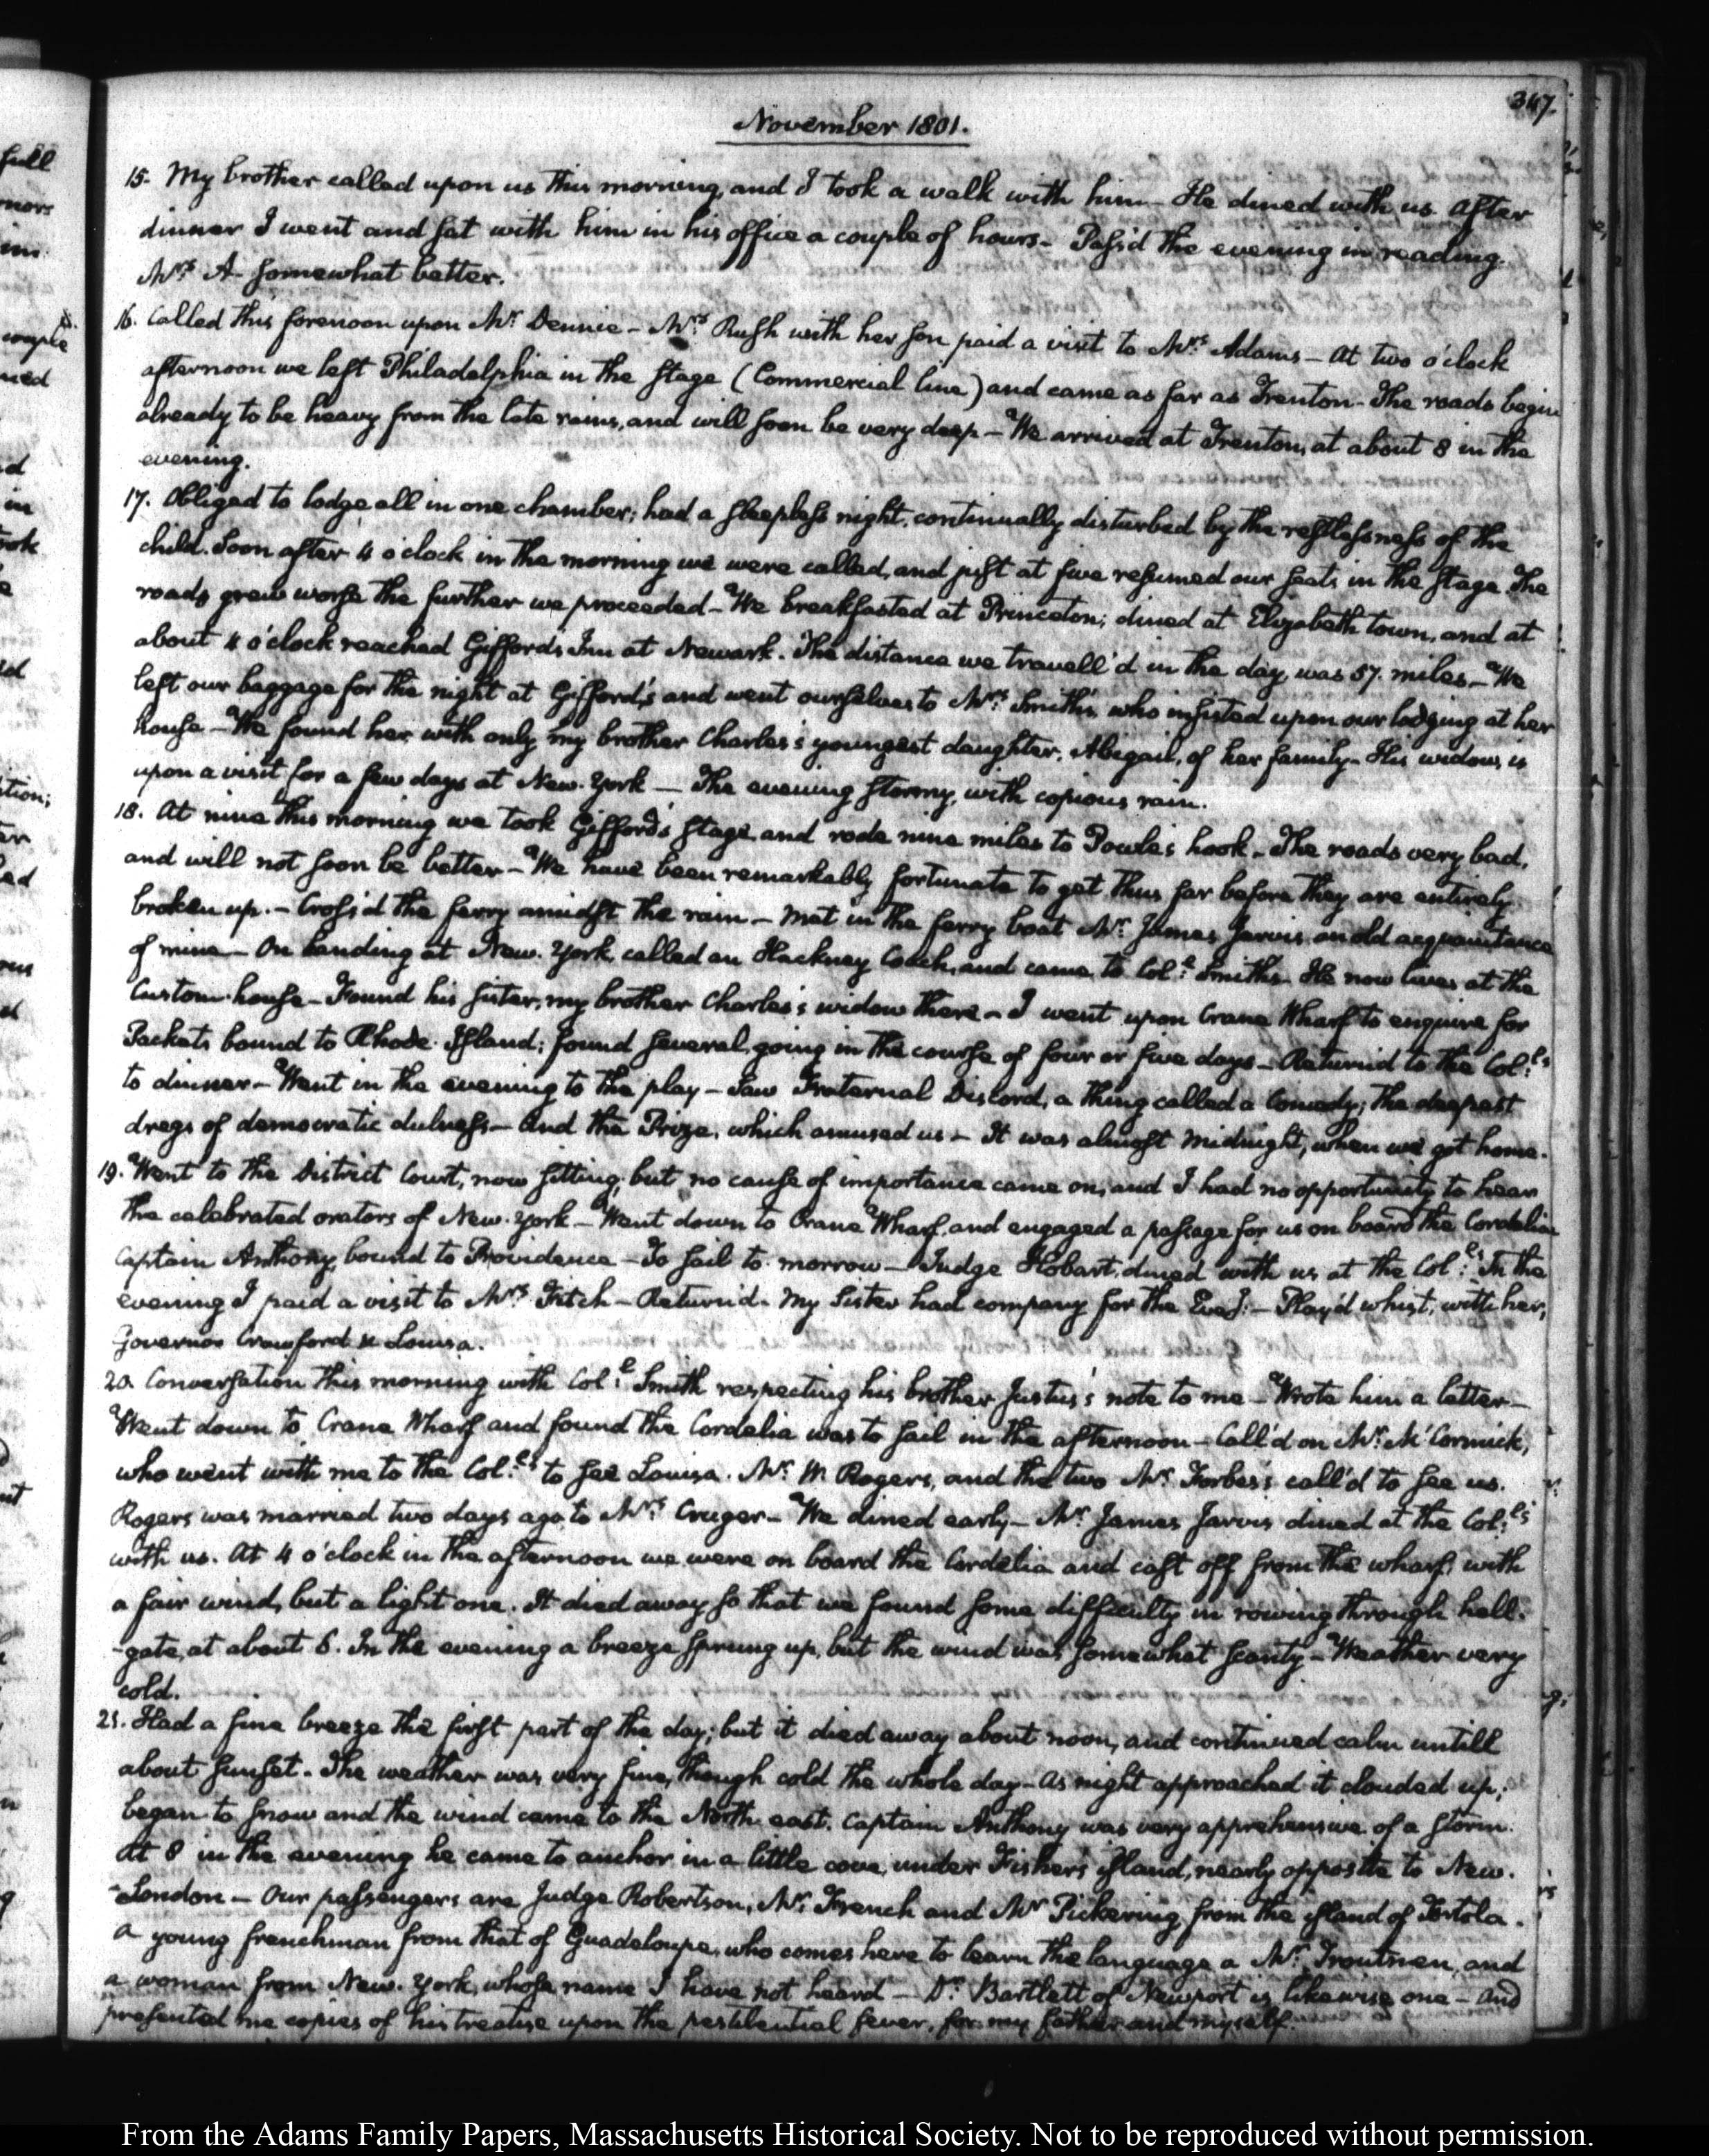 347.
November 1801.
15. My brother called upon us this morning, and I took a walk with him — He dined with us. After
dinner I went and sat with him in his office a couple of hours — Pass'd the evening in reading.
Mrs. A. somewhat better.
16. Called this forenoon upon Mr. Dennie — Mrs. Rush with her son paid a visit to Mrs. Adams — At two o'clock
afternoon we left Philadelphia in the stage (Commercial line) and came as far as Trenton — The roads begin
already to be heavy from the late rains, and will soon be very deep — We arrived at Trenton, at about 8 in the
evening.
17. Obliged to lodge all in one chamber; had a sleepless night, continually disturbed by the restlessness of the
child. Soon after 4 o'clock in the morning we were called, and just at five resumed our seats in the stage. The
roads grew worse the further we proceeded — We breakfasted at Princeton; dined at Elizabeth town, and at
about 4 o'clock reached Gifford's Inn at Newark. The distance we travell'd in the day was 57. miles — We
left our baggage for the night at Gifford's and went ourselves to Mrs. Smith's, who insisted upon our lodging at her
house — We found her with only my brother Charles's youngest daughter, Abigail, of her family — His widow, is
upon a visit for a few days at New-York — The evening stormy, with copious rain.
18. At nine this morning we took Gifford's stage and rode nine miles to Powles hook — The roads very bad,
and will not soon be better — We have been remarkably fortunate to get thus far before they are entirely
broken up. — Cross'd the ferry amidst the rain — Met in the ferry boat Mr. James Jarvis an old acquaintance
of mine — On landing at New-York, called an Hackney Coach, and came to Coll. Smith's — He now lives at the
Custom-house — Found his sister, my brother Charles's widow there — I went upon Crane Wharf to enquire for
Packets bound to Rhode-Island; found several, going in the course of four or five days — Return'd to the Coll's
to dinner — Went in the evening to the play — Saw Fraternal Discord, a thing called a Comedy; the deepest
dregs of democratic dulness — And the Prize, which amused us — It was almost midnight, when we got home.
19. Went to the District Court, now sitting; but no cause of importance came on, and I had no opportunity to hear
the celebrated orators of New-York — Went down to Crane Wharf, and engaged a passage for us on board the Cordelia
Captain Anthony, bound to Providence — To sail to-morrow — Judge Hobart, dined with us at the Coll's In the
evening I paid a visit to Mrs. Fitch — Return'd. My Sister had company for the Eveg. — Play'd whist, with her,
Governor Crawford & Louisa.
20. Conversation this morning with Coll. Smith respecting his brother Justus's note to me — Wrote him a letter —
Went down to Crane Wharf and found the Cordelia was to sail in the afternoon — Call'd on Mr. McCormick,
who went with me to the Coll's to see Louisa. Mr. M Rogers, and the two Mr. Forbes's call'd to see us.
Rogers was married two days ago to Mrs. Cruger — We dined early — Mr. James Jarvis dined at the Coll's
with us. At 4 o'clock in the afternoon we were on board the Cordelia and cast off from the wharf, with
a fair wind, but a light one. It died away so that we found some difficulty in rowing through hell-
-gate, at about 6. In the evening a breeze sprung up, but the wind was somewhat scanty — Weather very
cold.
21. Had a fine breeze the first part of the day; but it died away about noon, and continued calm untill
about sunset. The weather was very fine, though cold the whole day — As night approached it clouded up;
began to snow and the wind came to the North-east. Captain Anthony was very apprehensive of a storm.
At 8 in the evening he came to anchor in a little cove, under Fisher's Island, nearly opposite to New-
-London — Our passengers are Judge Robertson, Mr. French and Mr. Pickering, from the island of Tortola.
A young frenchman from that of Guadeloupe, who comes here to learn the language a Mr. Troutmen, and
a woman from New-York, whose name I have not heard — Dr. Bartlett of Newport is likewise one — and
presented me copies of his treatise upon the pestilential fever, for my father and myself.
From the Adams Family Papers, Massachusetts Historical Society. Not to be reproduced without permission.